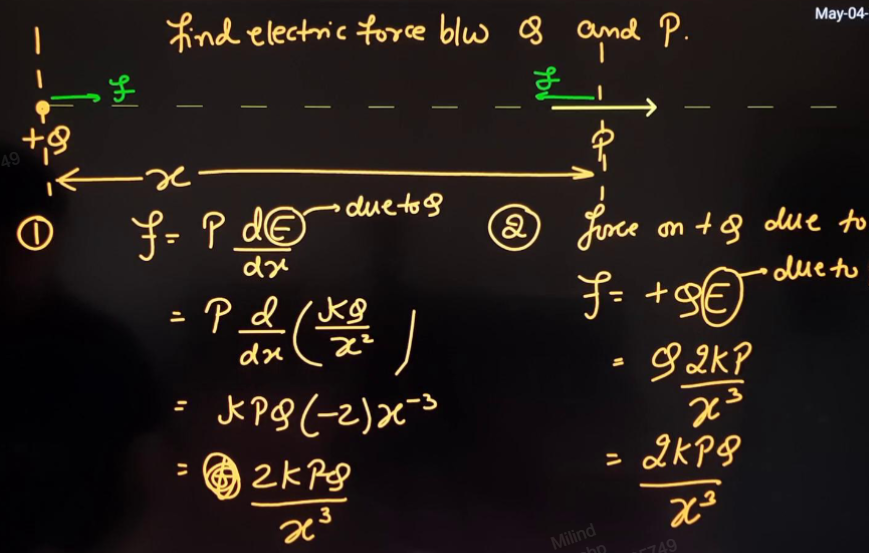 May-04-
Find electric force b/w Q and P.
F
F
+Q
P
x
49
① F = P dE/dx → due to Q
= P d/dx (KQ/x²)
= KPQ(-2)x⁻³
= 2KPQ/x³
② Force on +Q due to
F = +QE → due to
= Q 2KP/x³
= 2KPQ/x³
Milind
749